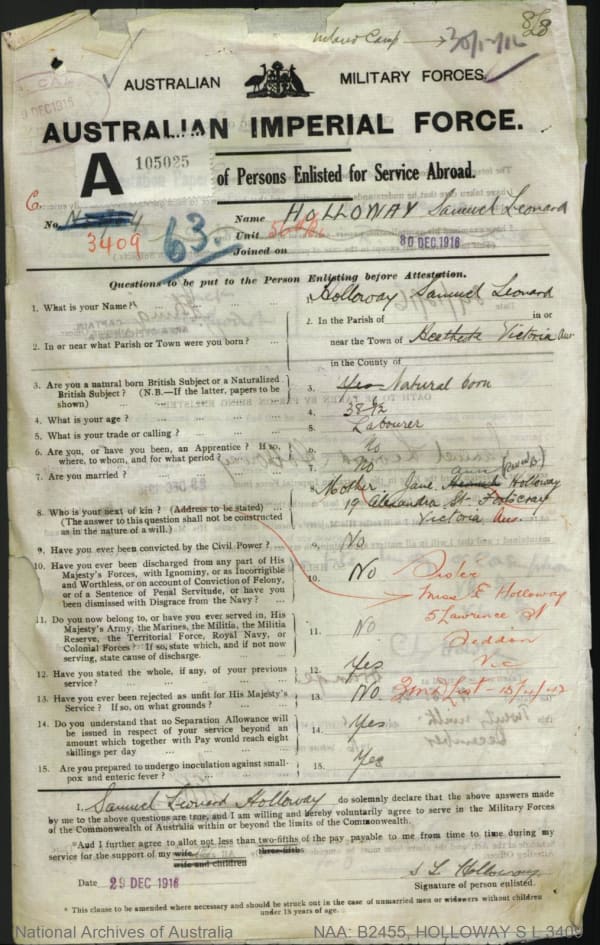 8/8
Camp → 30/1-16
9 DEC 1916
AUSTRALIAN MILITARY FORCES.
AUSTRALIAN IMPERIAL FORCE.
A 105025 of Persons Enlisted for Service Abroad.
No. 3409 63.
Name HOLLOWAY Samuel Leonard
Unit
Joined on 30 DEC 1916
Questions to be put to the Person Enlisting before Attestation.
1. What is your Name? ... 1. Holloway Samuel Leonard
2. In or near what Parish or Town were you born? ... 2. In the Parish of in or
near the Town of Victoria Aus
in the County of
3. Are you a natural born British Subject or a Naturalized
British Subject? (N.B.—If the latter, papers to be
shown) ... 3. Yes Natural born
4. What is your age? ... 4. 38
5. What is your trade or calling? ... 5. Labourer
6. Are you, or have you been, an Apprentice? If so,
where, to whom, and for what period? ... 6. No
7. Are you married? ... 7. No
8. Who is your next of kin? (Address to be stated)
(The answer to this question shall not be construed
as in the nature of a will.)
Mother Jane Ann Holloway
19 Alexandra St. Footscray
Victoria Aus.
9. Have you ever been convicted by the Civil Power? ... 9. No
10. Have you ever been discharged from any part of His
Majesty's Forces, with Ignominy, or as Incorrigible
and Worthless, or on account of Conviction of Felony,
or of a Sentence of Penal Servitude, or have you
been dismissed with Disgrace from the Navy? ... 10. No
Sister
Miss E Holloway
5 Lawrence St
Seddon
Vic
11. Do you now belong to, or have you ever served in, His
Majesty's Army, the Marines, the Militia, the Militia
Reserve, the Territorial Force, Royal Navy, or
Colonial Forces? If so, state which, and if not now
serving, state cause of discharge. 11. No
12. Have you stated the whole, if any, of your previous
service? ... 12. Yes
13. Have you ever been rejected as unfit for His Majesty's
Service? If so, on what grounds? ... 13. No
14. Do you understand that no Separation Allowance will
be issued in respect of your service beyond an
amount which together with Pay would reach eight
shillings per day ... 14. Yes
15. Are you prepared to undergo inoculation against small-
pox and enteric fever? ... 15. Yes
I, Samuel Leonard Holloway do solemnly declare that the above answers made
by me to the above questions are true, and I am willing and hereby voluntarily agree to serve in the Military Forces
of the Commonwealth of Australia within or beyond the limits of the Commonwealth.
*And I further agree to allot not less than two-fifths of the pay payable to me from time to time during my
three-fifths
service for the support of my wife.
wife and children
S L Holloway
Date 29 DEC 1916 Signature of person enlisted.
* This clause to be amended where necessary and should be struck out in the case of unmarried men or widowers without children
under 18 years of age.
National Archives of Australia NAA: B2455, HOLLOWAY S L 3409